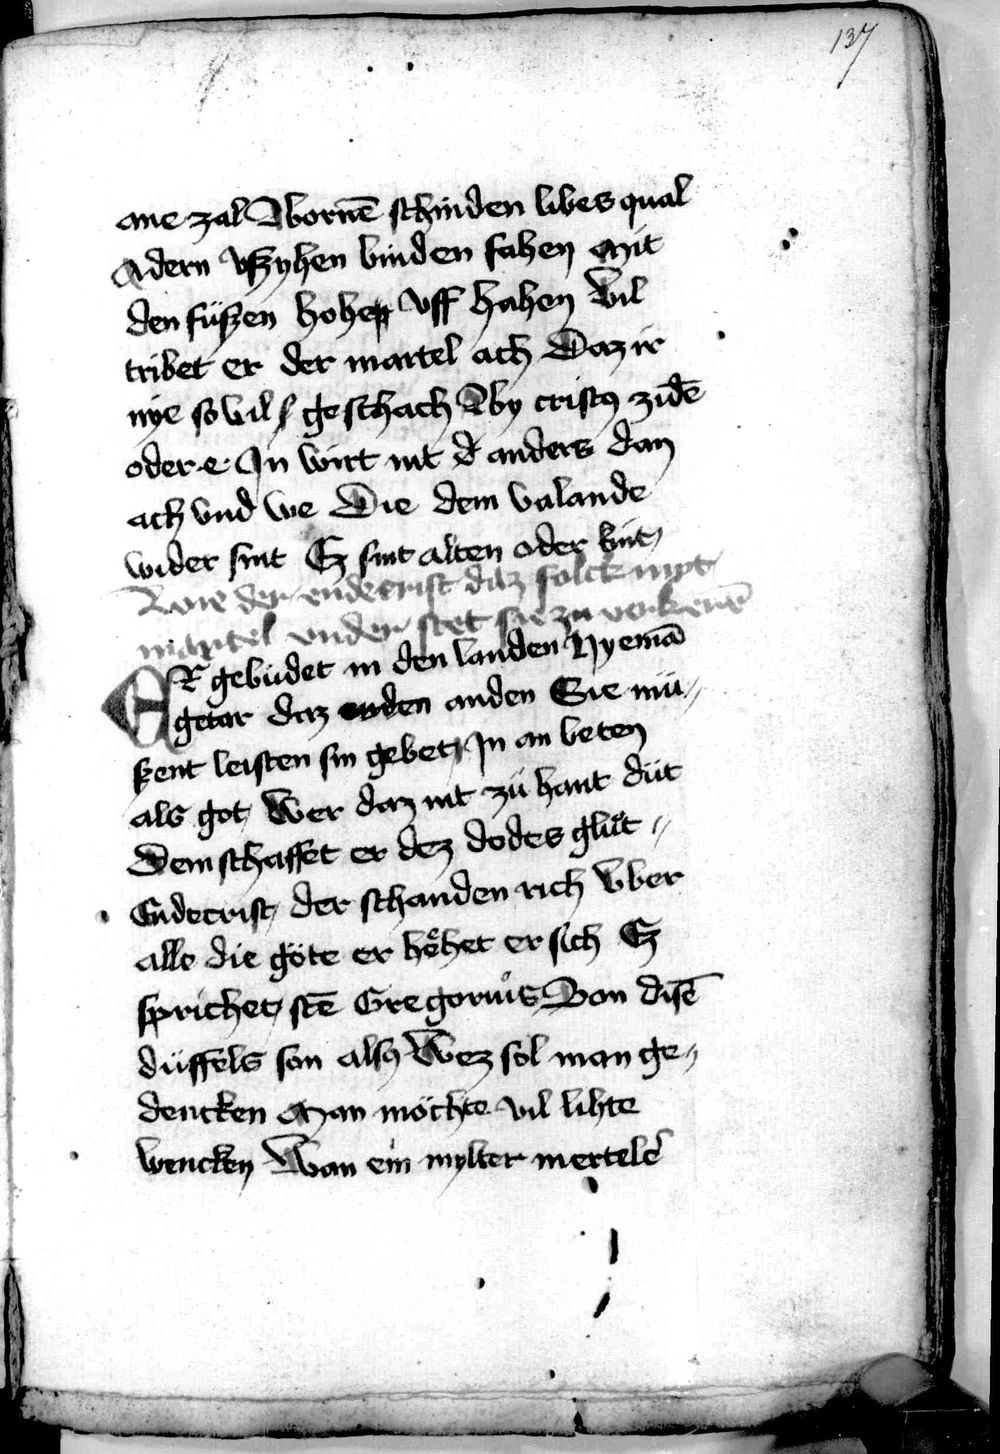 137
ane zal Vbornē schinden libes qual
Adern vßzyhen binden fahen Mit
den füßen hohen vff hahen Vil
tribet er der martel ach Daz ir
nye so vil geschach By cristꝯ zide
oder e In wirt nit d anders dan
ach vnd we Die dem valande
wider sint Ez sint alten oder kint
Wie der endecrist daz folck myt
martel vnder stet sie zu verkerē
ER gebüdet in den landen Nyemā
getar daz enden anden Sie mü〃
ßent leisten sin gebet In an beten
als got Wer daz nit zü hant düt
Dem schaffet er dez dodes glüt 〃
Endecrist der schanden rich Vber
alle die göte er hëhet er sich Ez
sprichet stē Gregorius Von disē
düffels son alsꝯ Wez sol man ge〃
dencken Man möchte vil lihte
wencken Wan ein mylter merteler